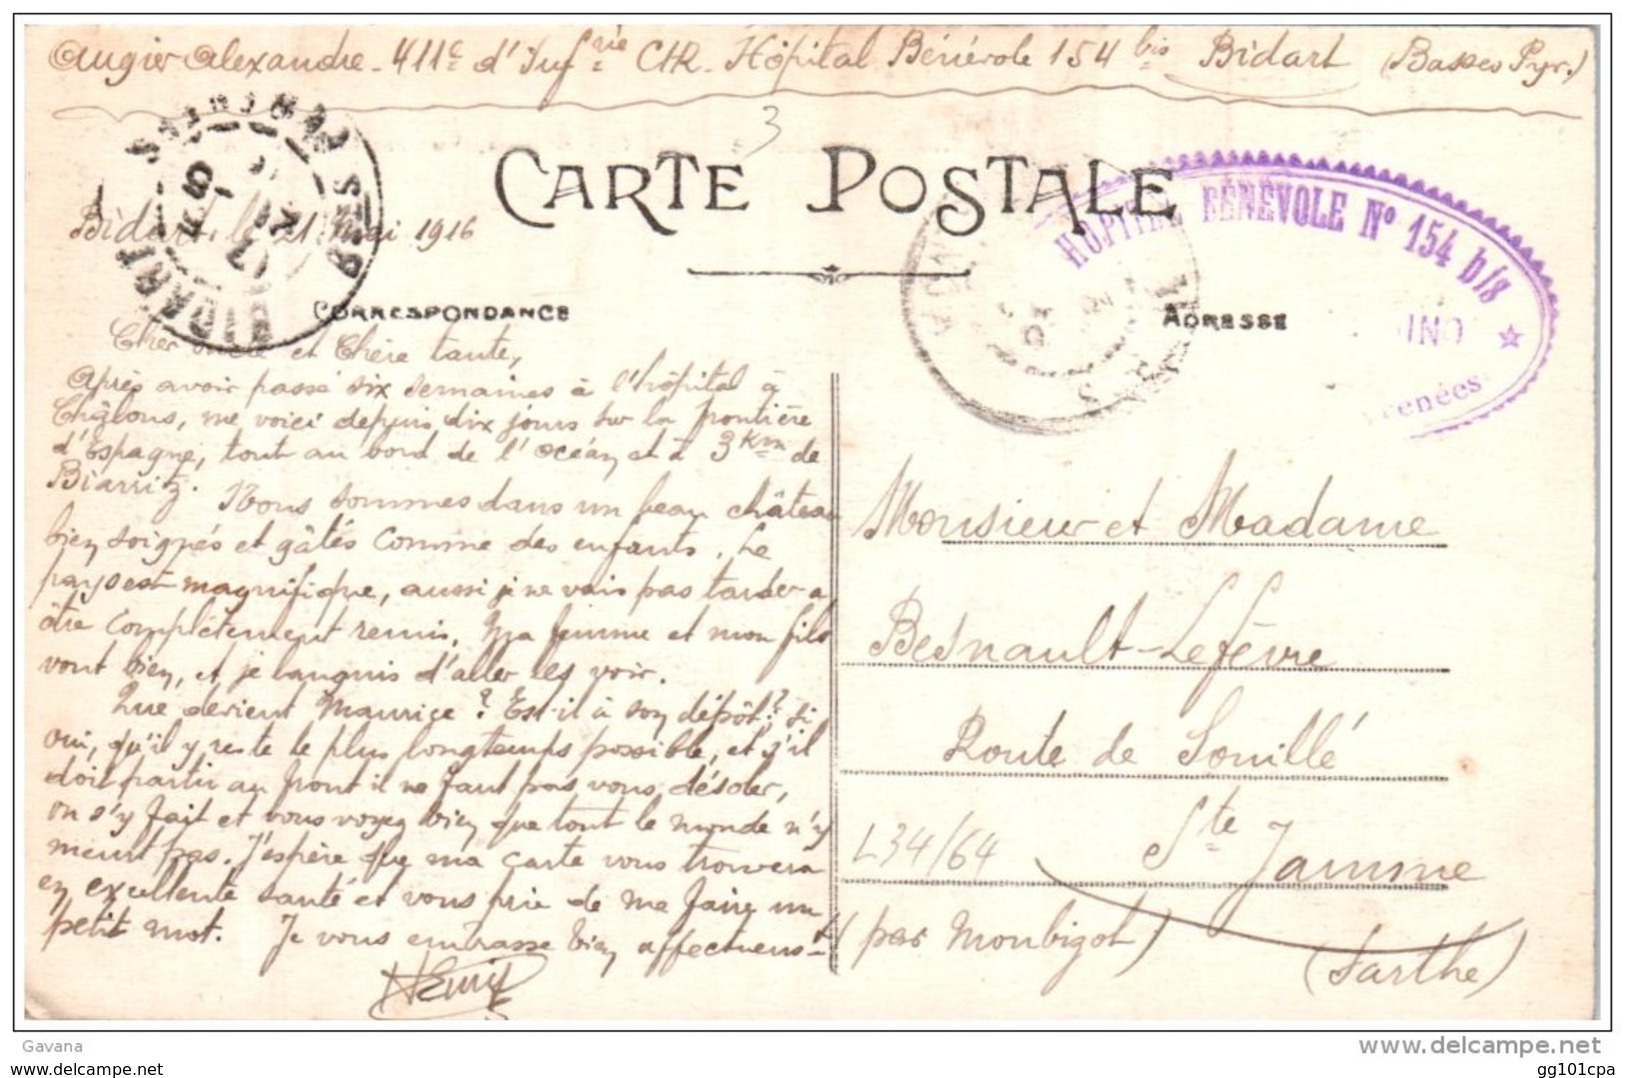 Augier Alexandre - 411e d'Infrie CHR. Hôpital Bénévole 154 bis Bidart (Basses Pyr.)
3
CARTE POSTALE
HOPITAL BÉNÉVOLE No 154 bis
Bidart, le 21 Mai 1916
CORRESPONDANCE
ADRESSE
Cher oncle et Chère tante,
Après avoir passé six semaines à l'hôpital à
Châlons, me voici depuis dix jours sur la frontière
d'Espagne, tout au bord de l'océan et à 3 Km de
Biarritz. Nous sommes dans un beau château
bien soignés et gâtés comme des enfants. Le
pays est magnifique, aussi je ne vais pas tarder a
être complètement remis. Ma femme et mon fils
vont bien, et je languis d'aller les voir.
Que devient Maurice ? Est-il à son dépôt ? si
oui, qu'il y reste le plus longtemps possible, et s'il
doit partir au front il ne faut pas vous désoler,
on s'y fait et vous voyez bien que tout le monde n'y
meurt pas. J'espère que ma carte vous trouvera
en excellente santé et vous prie de me faire un
petit mot. Je vous embrasse bien affectueust
Monsieur et Madame
Besnault-Lefèvre
Route de Souillé
L34/64
Ste Jamme
(par Monbigot)
(Sarthe)
Gavana
www.delcampe.net
gg101cpa